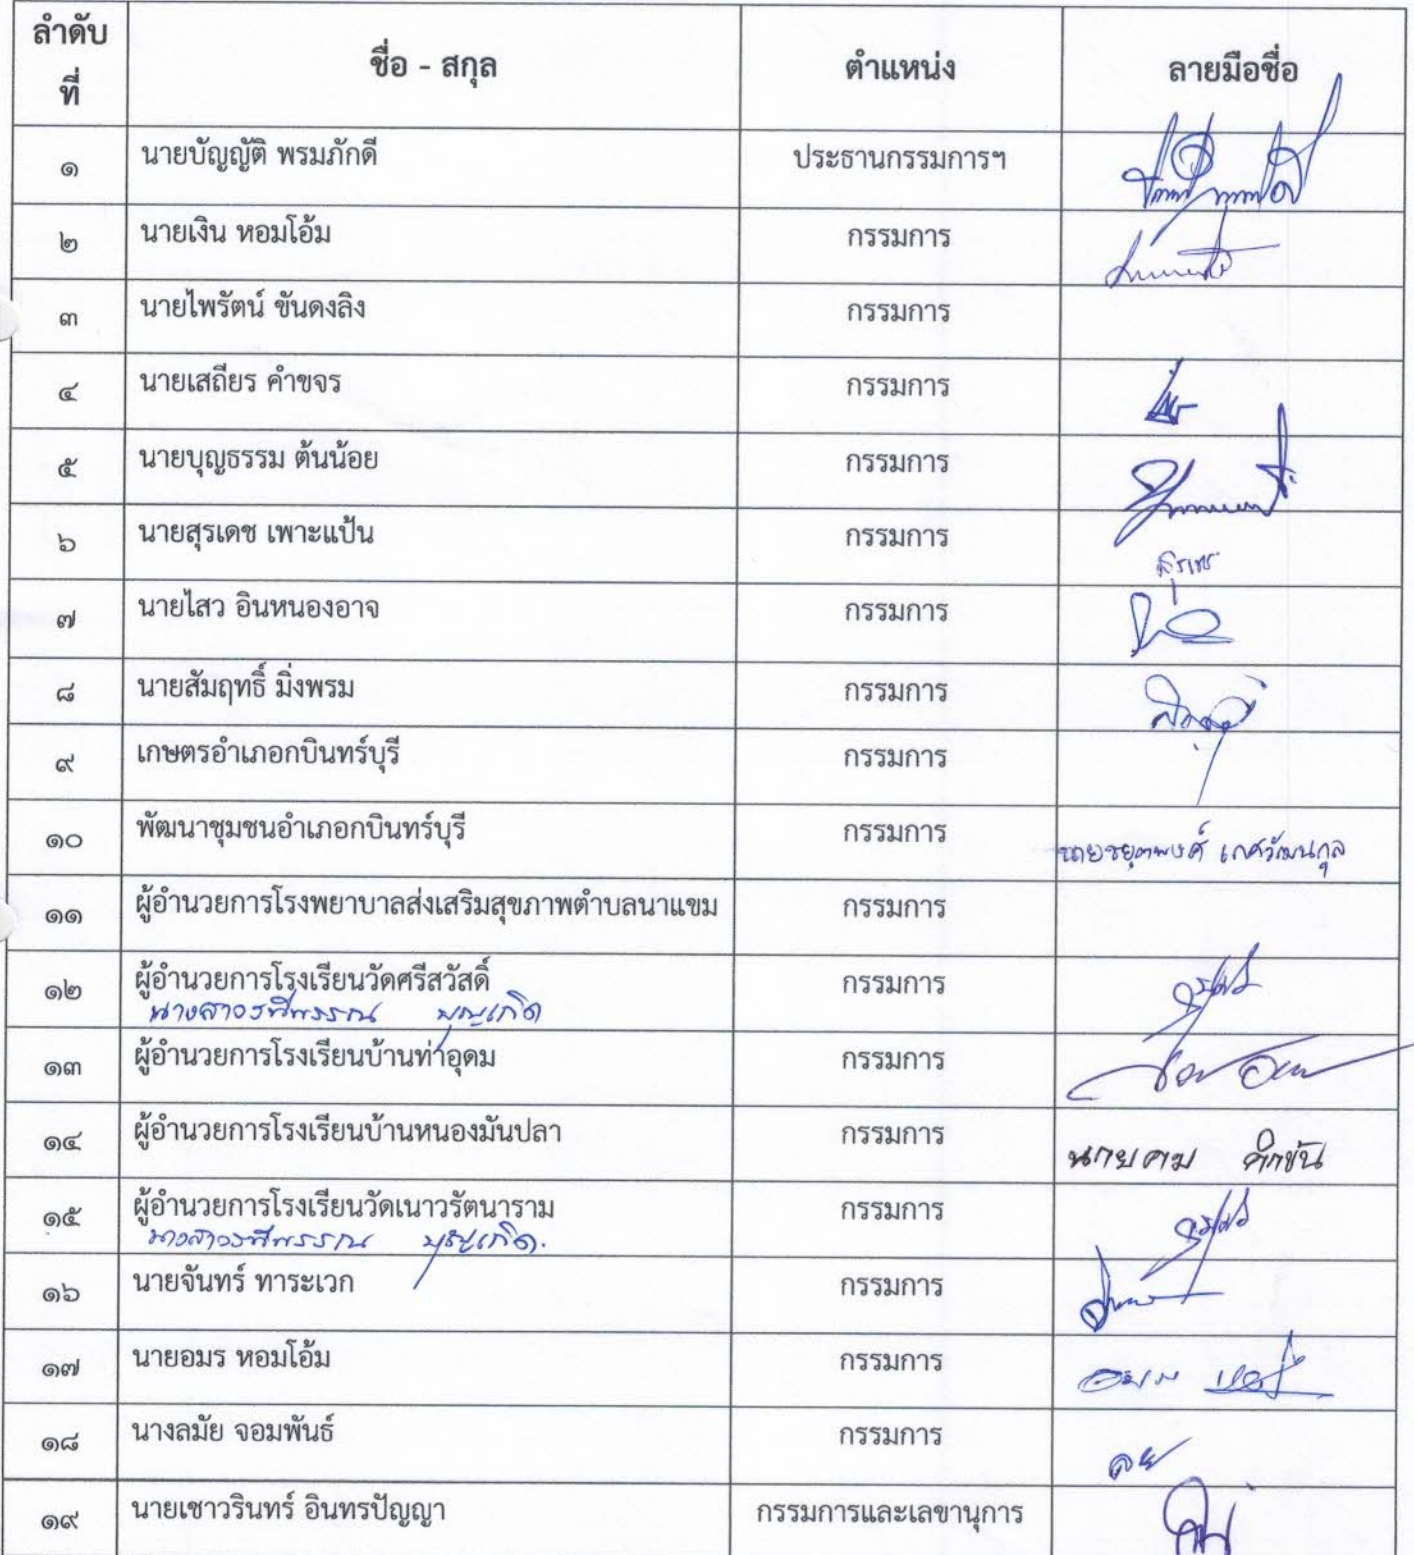 ลำดับ
ที่
ชื่อ - สกุล
ตำแหน่ง
ลายมือชื่อ
๑ นายบัญญัติ พรมภักดี ประธานกรรมการฯ
๒ นายเงิน หอมโอ้ม กรรมการ
๓ นายไพรัตน์ ขันดงลิง กรรมการ
๔ นายเสถียร คำขจร กรรมการ
๕ นายบุญธรรม ต้นน้อย กรรมการ
๖ นายสุรเดช เพาะแป้น กรรมการ สุรเดช
๗ นายไสว อินหนองอาจ กรรมการ
๘ นายสัมฤทธิ์ มิ่งพรม กรรมการ
๙ เกษตรอำเภอกบินทร์บุรี กรรมการ
๑๐ พัฒนาชุมชนอำเภอกบินทร์บุรี กรรมการ
๑๑ ผู้อำนวยการโรงพยาบาลส่งเสริมสุขภาพตำบลนาแขม กรรมการ
๑๒ ผู้อำนวยการโรงเรียนวัดศรีสวัสดิ์ กรรมการ
บุญเกิด
๑๓ ผู้อำนวยการโรงเรียนบ้านท่าอุดม กรรมการ
๑๔ ผู้อำนวยการโรงเรียนบ้านหนองมันปลา กรรมการ
๑๕ ผู้อำนวยการโรงเรียนวัดเนาวรัตนาราม กรรมการ
บุญเกิด.
๑๖ นายจันทร์ ทาระเวก กรรมการ
๑๗ นายอมร หอมโอ้ม กรรมการ
๑๘ นางลมัย จอมพันธ์ กรรมการ
๑๙ นายเชาวรินทร์ อินทรปัญญา กรรมการและเลขานุการ